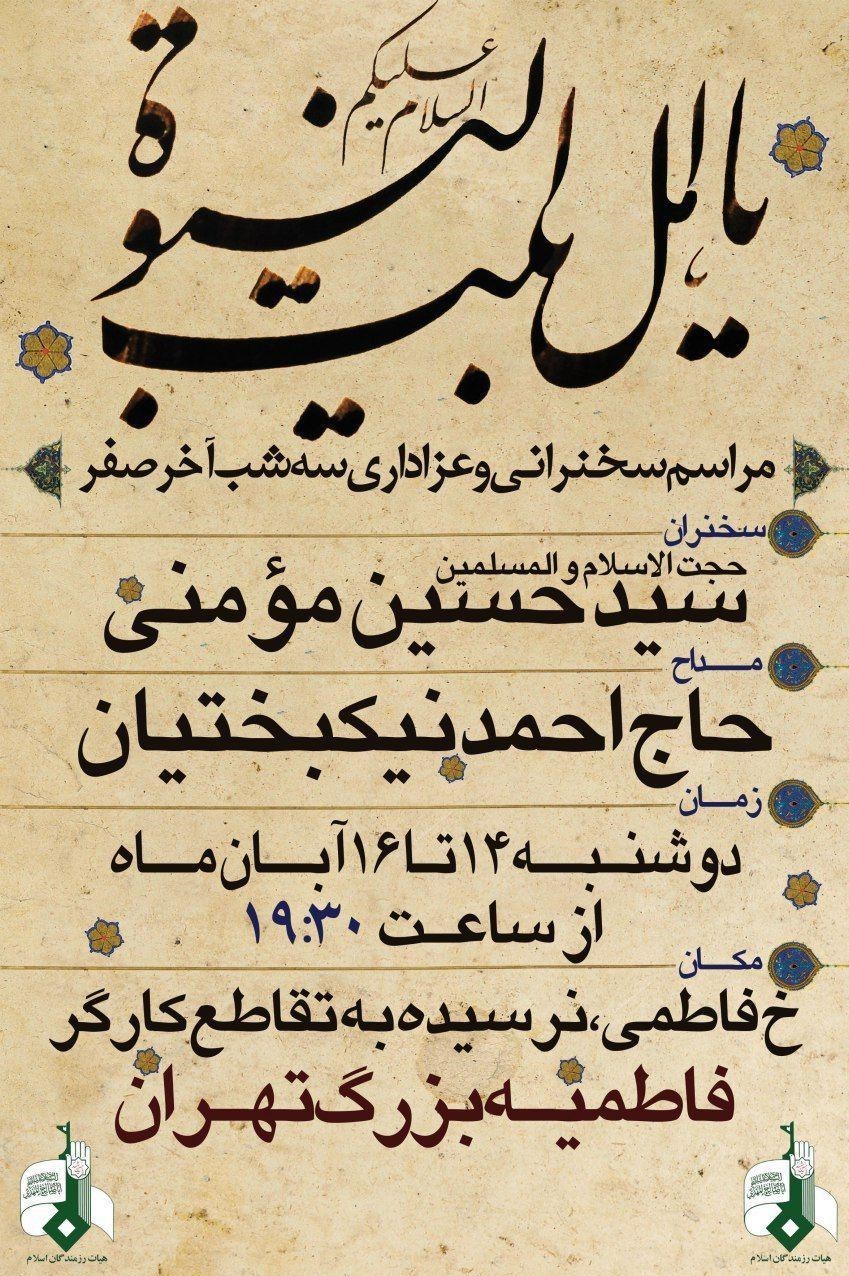 السلام علیکم
یا اهل البیت النبوة
مراسم سخنرانی و عزاداری سه شب آخر صفر
سخنران
حجت الاسلام و المسلمین
سید حسین مؤمنی
مداح
حاج احمد نیکبختیان
زمان
دوشنبه ۱۴ تا ۱۶ آبان ماه
از ساعت ۱۹:۳۰
مکان
خ فاطمی، نرسیده به تقاطع کارگر
فاطمیه بزرگ تهران
هیات رزمندگان اسلام
هیات رزمندگان اسلام